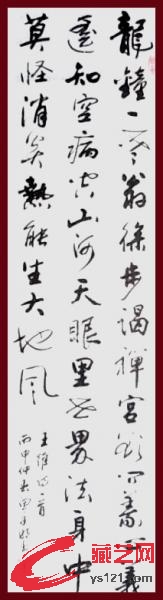 龍鐘一老翁徐步謁禪宮欲问義心義
遥知空病空山河天眼里世界法身中
莫怪消炎熱能生大地風
王維詩一首
丙申仲春
藏艺网
ys121.com